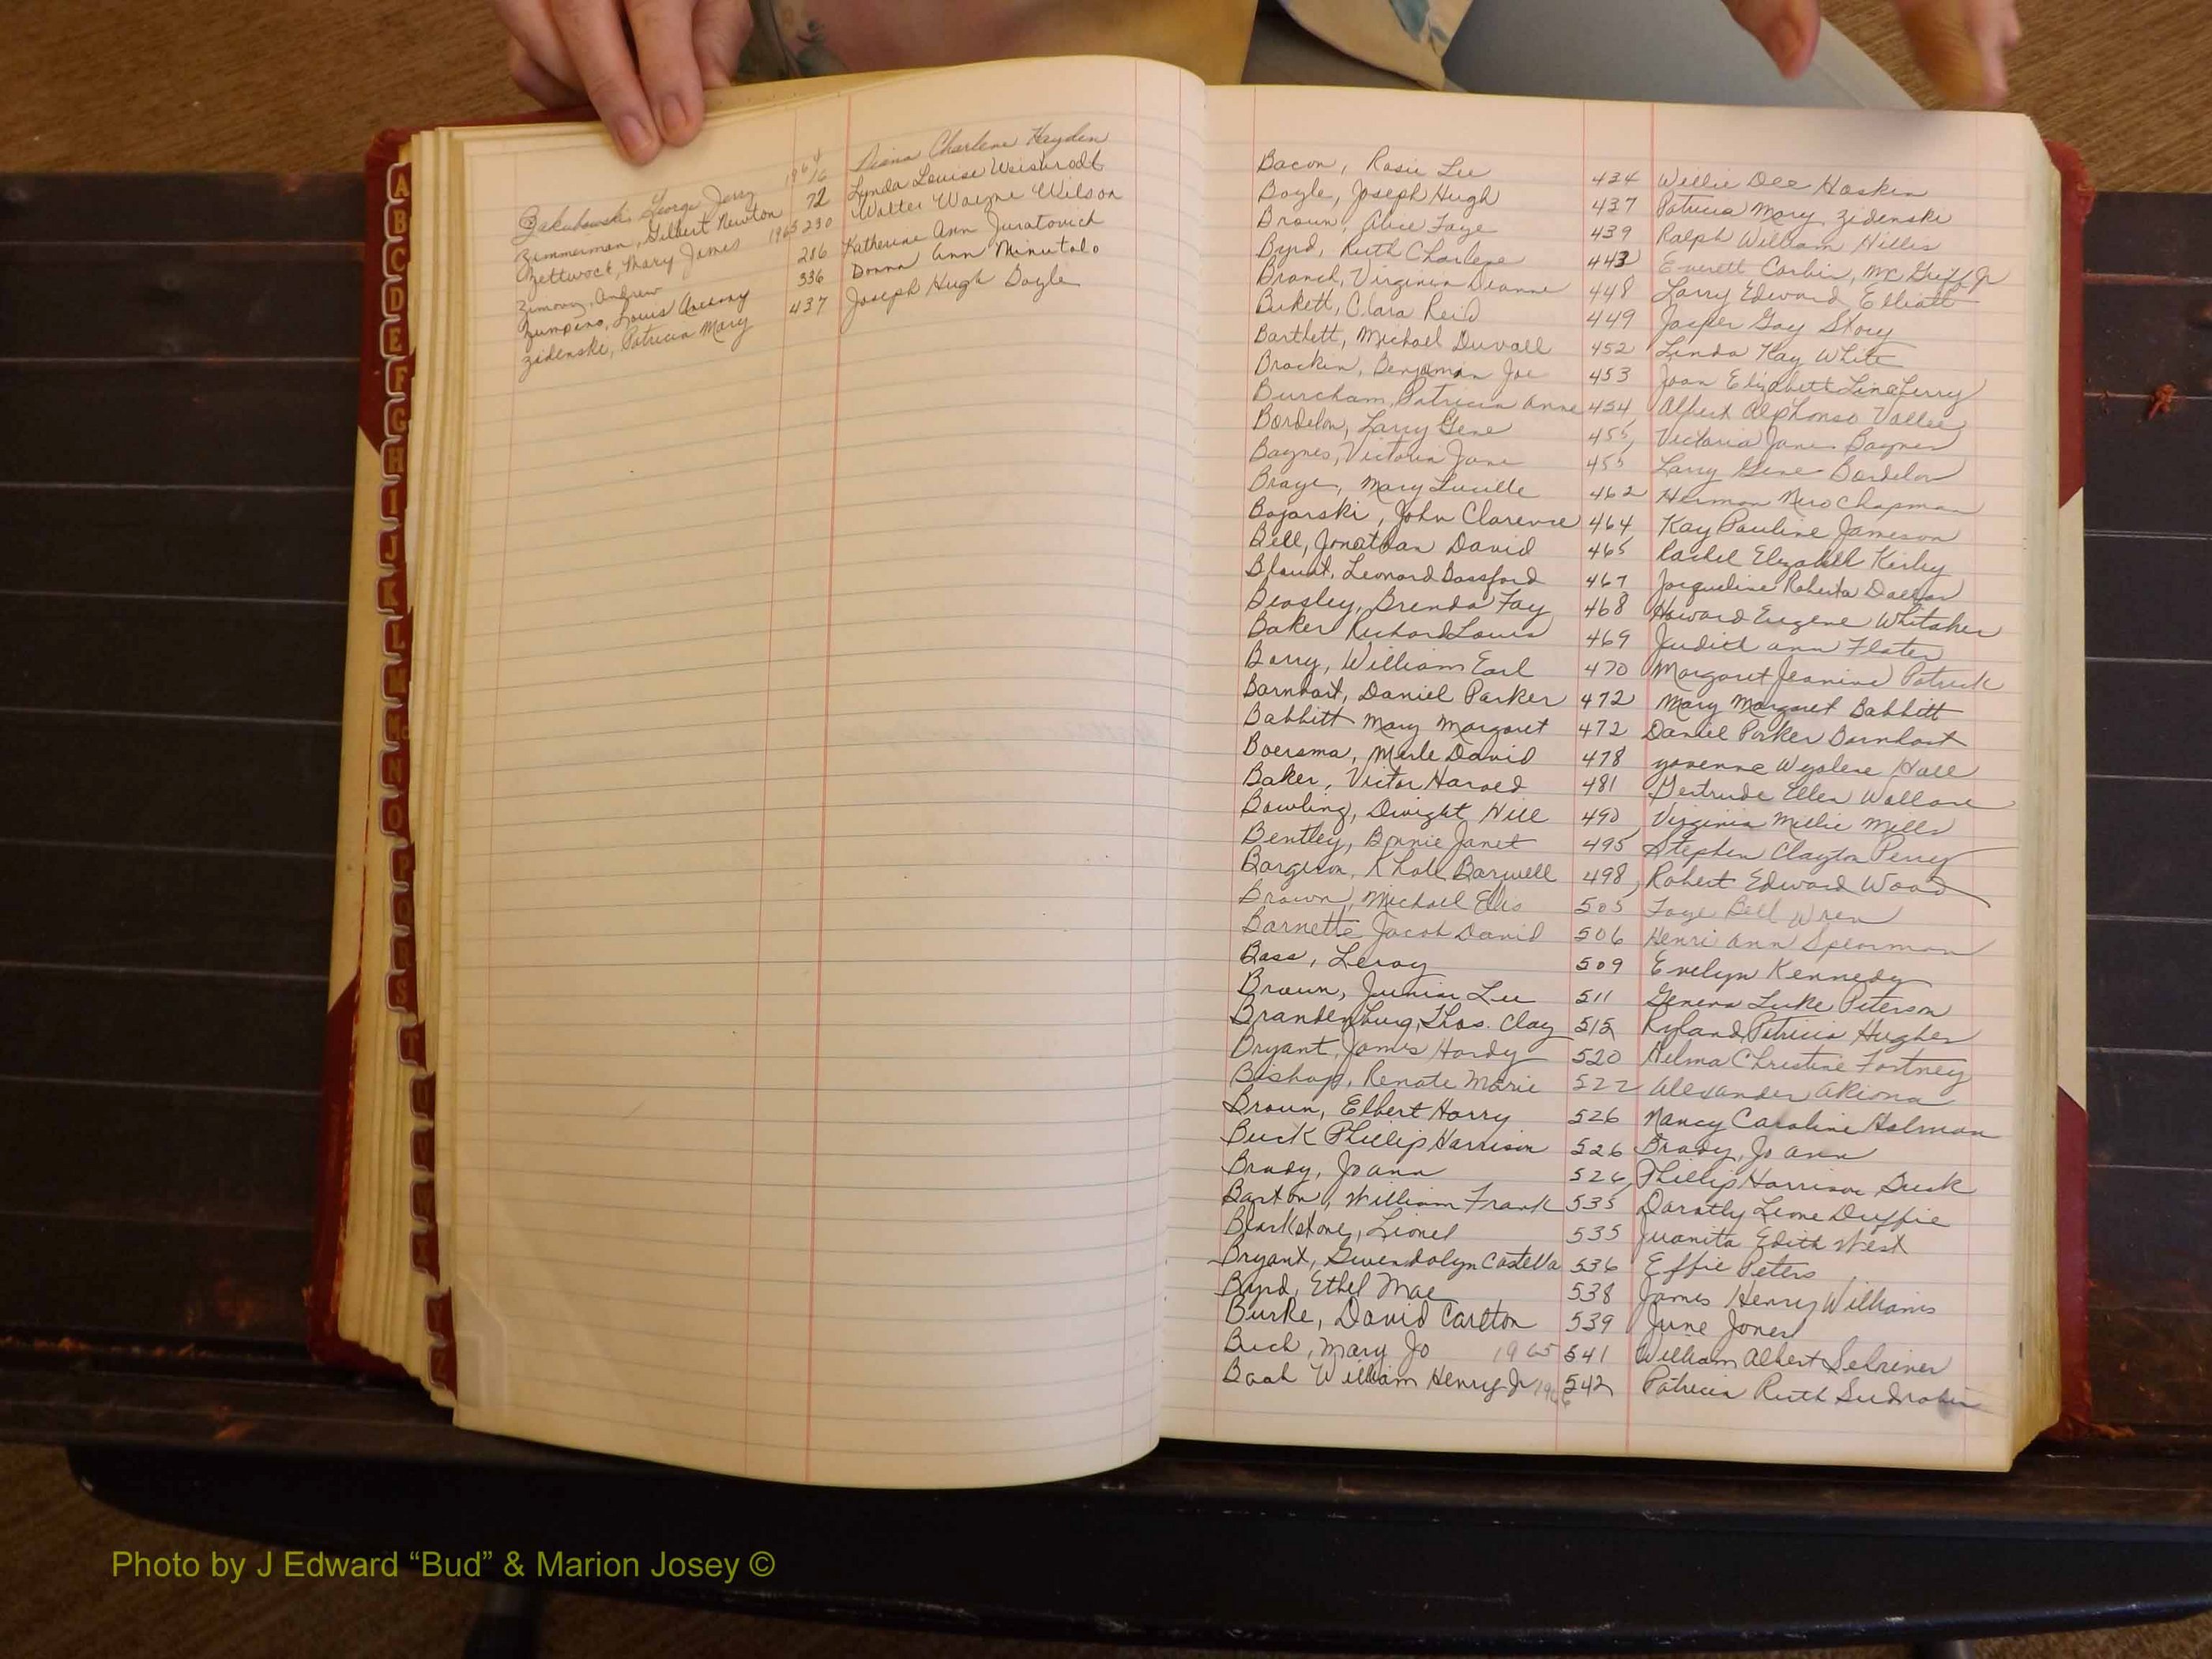 George Jerry 1964 16 Diana Charlene Hayden
Zimmerman, Gilbert Newton 72 Lynda Louise Weisbrodt
Zettwock, Mary James 1965 230 Walter Wayne Wilson
Andrew 286 Katherine Ann Juratovich
Louis Anthony 336 Donna Ann Minutolo
Zidenski, Patricia Mary 437 Joseph Hugh Boyle
A
B
C
D
E
F
G
H
I
J
K
L
M
Mc
N
O
P
Q
R
S
T
Z
Bacon, Rosie Lee 434 Willie Dee Haskin
Boyle, Joseph Hugh 437 Patricia Mary Zidenski
Brown, Alice Faye 439 Ralph William Hillis
Byrd, Ruth Charlene 443 Everett Corbin, McGriff Jr
Branch, Virginia Dianne 448 Larry Edward Elliott
Clara Reid 449 Jasper Gay Story
Bartlett, Michael Duvall 452 Linda Kay White
Brackin, Benjaman Joe 453 Joan Elizabeth Lineberry
Burcham, Patricia Anne 454 Albert Alphonso Vallee
Bordelon, Larry Gene 455 Victoria Jane Baynes
Baynes, Victoria Jane 455 Larry Gene Bordelon
Braye, Mary Lucille 462 Herman Nero Chapman
Bojarski, John Clarence 464 Kay Pauline Jameson
Bell, Jonathan David 465 Rachel Elizabeth Kirby
Blount, Leonard Bassford 467 Jacqueline Roberta
Beasley, Brenda Fay 468 Howard Eugene Whitaker
Baker Richard Louis 469 Judith Ann
Barry, William Earl 470 Margaret Jeanine Patrick
Barnhart, Daniel Parker 472 Mary Margaret Babbitt
Babbitt Mary Margaret 472 Daniel Parker Barnhart
Boersma, Merle David 478 Hall
Baker, Victor Harold 481 Gertrude Ellen Wallace
Bowling, Dwight Hill 490 Virginia Millie Mills
Bentley, Bonnie Janet 495 Stephen Clayton Perry
Bargeron, Barwell 498 Robert Edward Wood
Brown, Michael 505 Faye Bell Wren
Barnette Jacob David 506 Henri Ann Spearman
Bass, Leroy 509 Evelyn Kennedy
Brown, Junior Lee 511 Geneva Luke Peterson
Brandenburg, Thos. Clay 512 Ryland, Patricia Hughes
Bryant, James Hardy 520 Christine Fortney
Bishop, Renate Marie 522 Alexander Akiona
Brown, Elbert Harry 526 Nancy Caroline Holman
Buck Phillip Harrison 526 Brady, Jo Ann
Brady, Jo Ann 526 Phillip Harrison Buck
Barton, William Frank 535 Dorothy Leone Duffie
Blackstone, Lionel 535 Juanita Edith West
Bryant, Gwendolyn Costella 536 Effie Peters
Byrd, Ethel Mae 538 James Henry Williams
Burke, David Carlton 539 June Jones
Mary Jo 1965 541 William Albert
William Henry Jr 1966 542 Patricia Ruth
Photo by J Edward “Bud” & Marion Josey ©